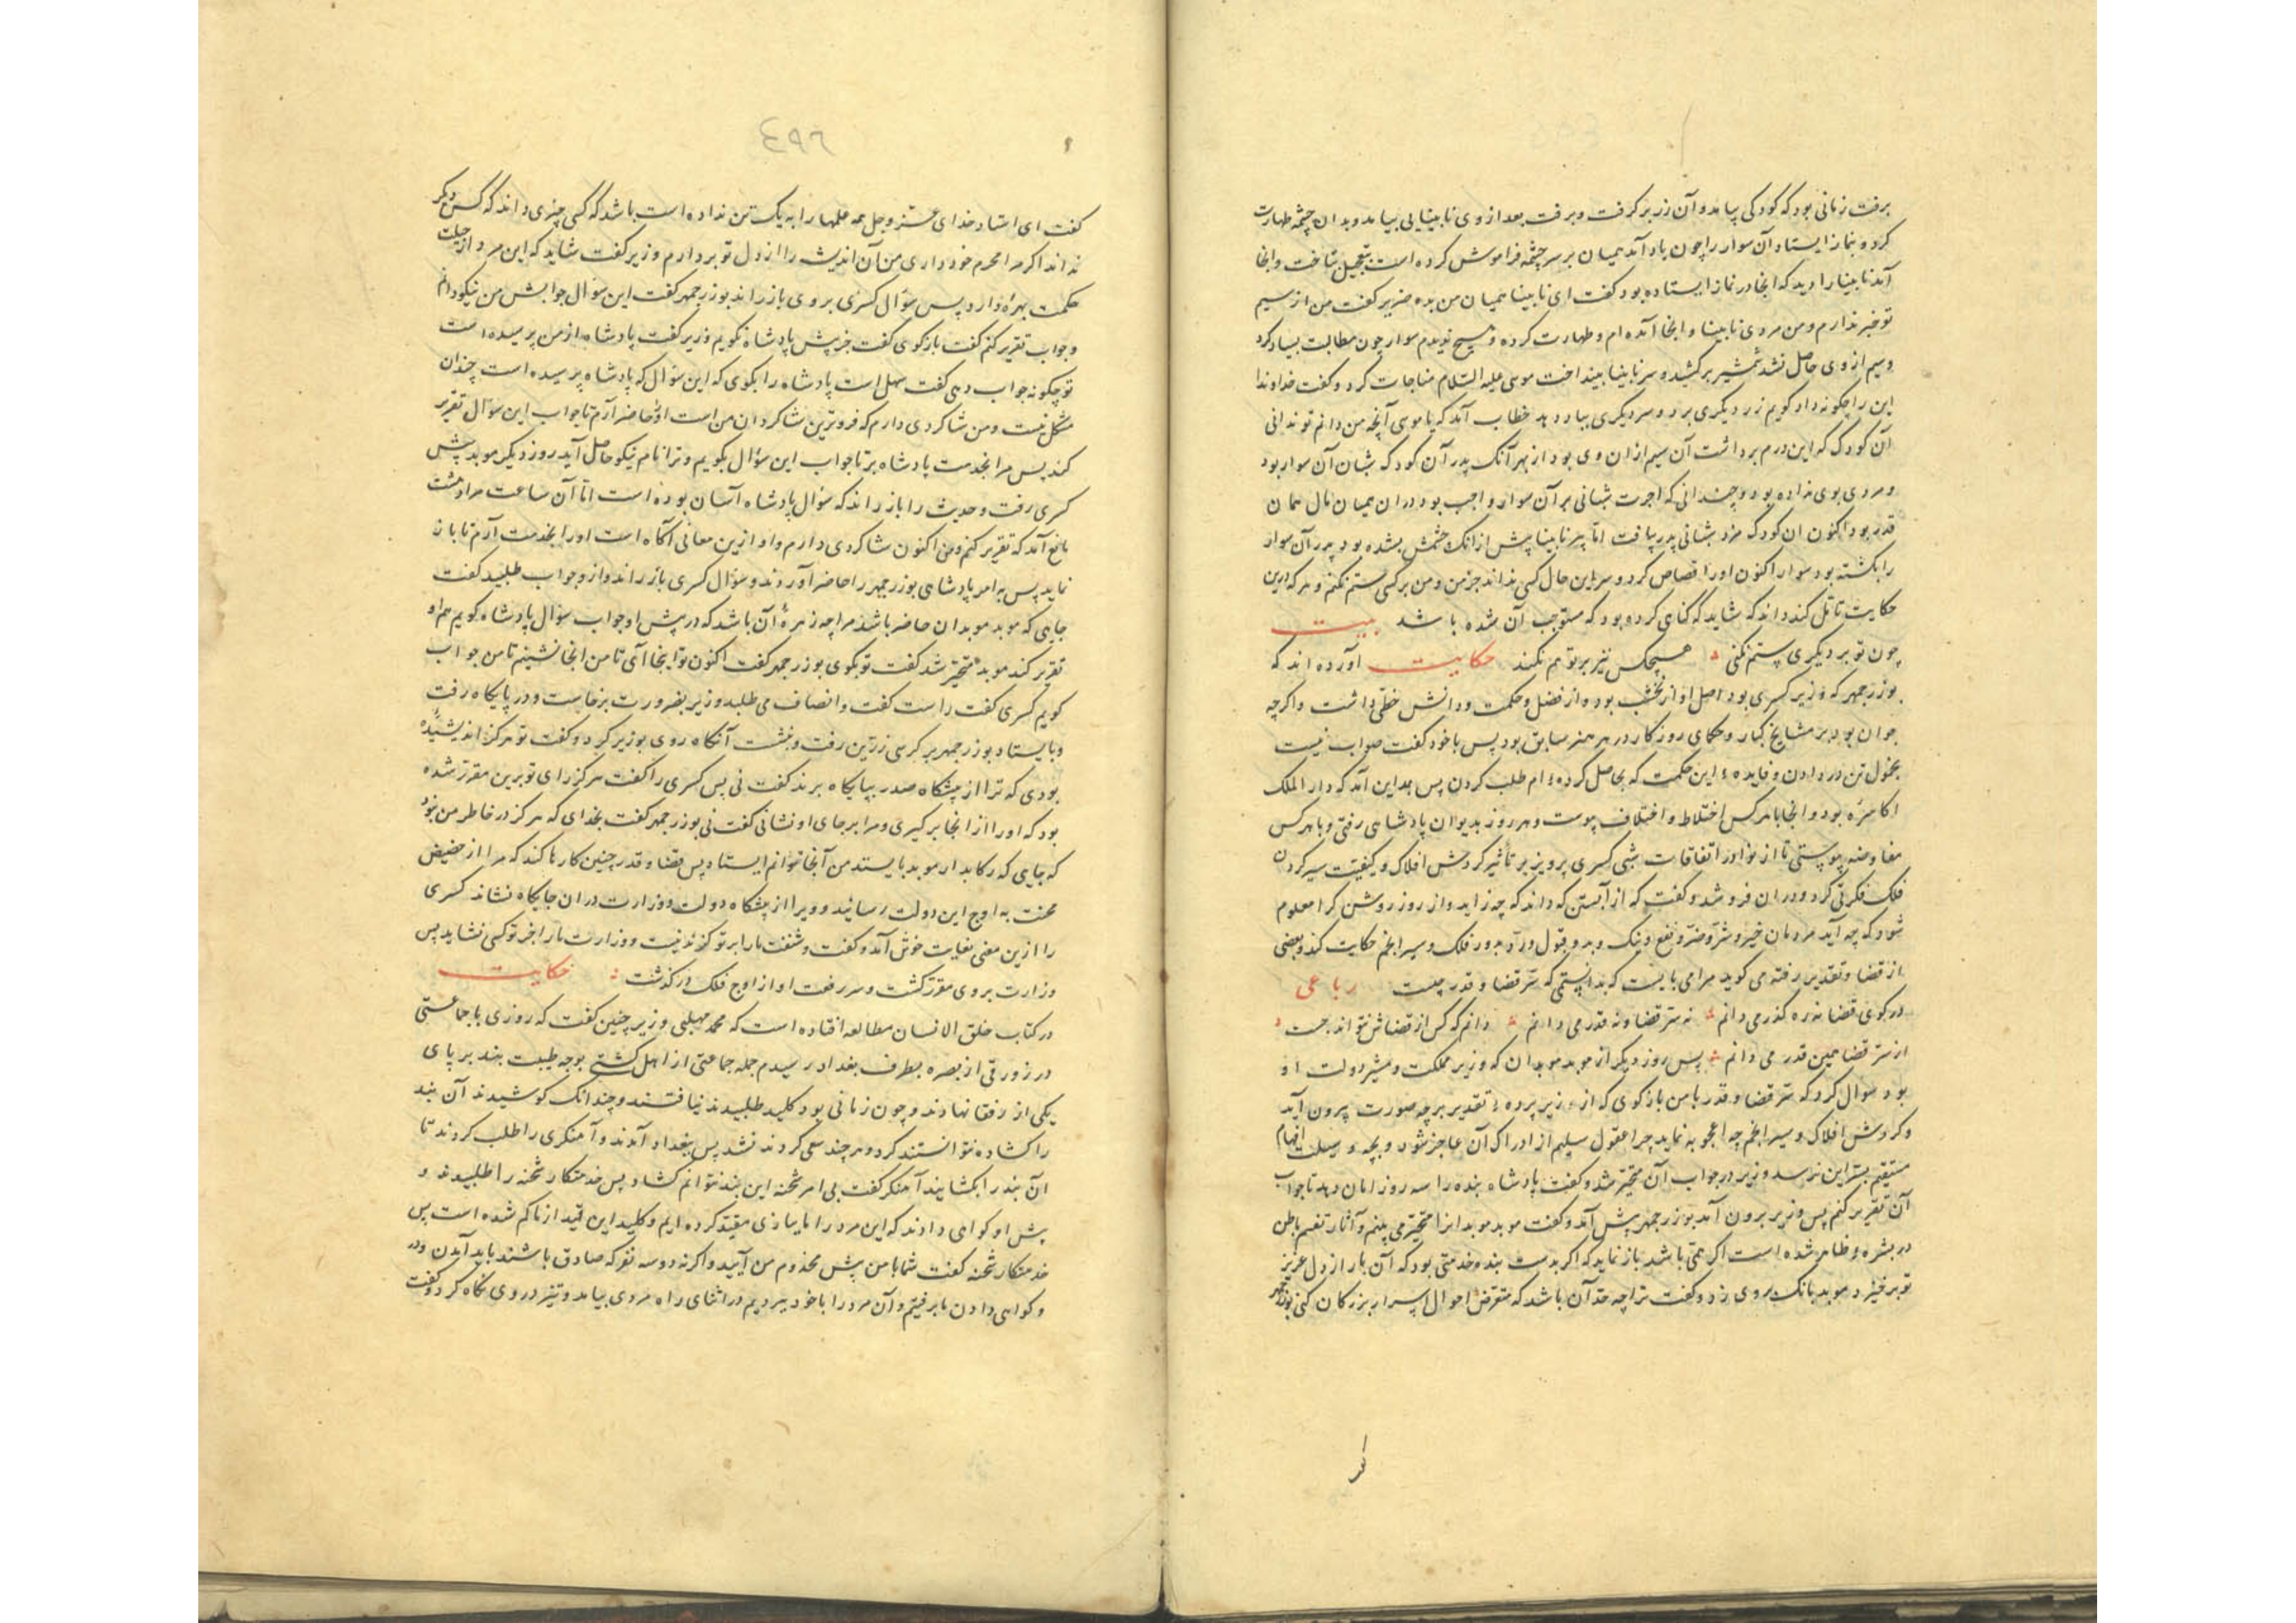 برفت زمانی بود که کودکی بیامد و آن زر برگرفت و برفت بعد از وی نابینایی بیامد و بدان چشمه طهارت
کرد و بنماز ایستاد آن سوار را چون یاد آمد همیان بر سر چشمه فراموش کرده است بتعجیل بتاخت و آنجا
آمد نابینا را دید که آنجا در نماز ایستاده بود گفت ای نابینا همیان من بده ضریر گفت من از سیم
تو خبر ندارم و من مردی نابینا و اینجا آمده ام و طهارت کرده و هیچ ندیدم سوار چون مطالبت بسیار کرد
و سیم از وی حاصل نشد شمشیر برکشید و سر نابینا بینداخت موسی علیه السلام مناجات کرد و گفت خداوندا
این را چگونه داد گویم زر دیگری برد و سر دیگری بباد دهد خطاب آمد که یا موسی آنچه من دانم تو ندانی
آن کودک که این درم برداشت آن سیم از ان وی بود از بهر آنک پدر آن کودک شبان آن سوار بود
و مزدی بوی نداده بود و چندانی که اجرت شبانی بر آن سوار واجب بود در ان همیان مال همان
قدر بود اکنون ان کودک مزد شبانی پدر یافت اما پیر نابینا پیش از انک چشمش بشده بود پدر آن سوار
را بکشته بود سوار اکنون اورا قصاص کرد و سر این حال کسی نداند جز من و من بر کسی ستم نکنم و هر که درین
حکایت تأمل کند داند که شاید که گناهی کرده بود که مستوجب آن شده باشد بیت
چون تو بر دیگری ستم نکنی هیچکس نیز بر تو هم نکند حکایت آورده اند که
بوزرجمهر که وزیر کسری بود اصل او از نخشب بود و از فضل و حکمت و دانش حظی داشت و اگر چه
جوان بود بر مشایخ کبار و حکمای روزگار در هر هنر سابق بود پس با خود گفت صواب نیست
بخمول تن در دادن و فایده این حکمت که بحاصل کرده ام طلب کردن پس بمداین آمد که دار الملک
اکاسره بود و آنجا با هر کس اختلاط و اختلاف پیوست و هر روز بدیوان پادشاهی رفتی و با هر کس
مفاوضه پیوستی تا از نوادر اتفاقات شبی کسری پرویز بر تأثیر گردش افلاک و کیفیت سیر کردن
فلک فکرتی کرد و در ان فرو شد و گفت که از آبستن که داند که چه زاید و از روز روشن کرا معلوم
شود که چه آید مردمان خیر و شر و ضر و نفع و نیک و بد و قبول و رد بدور فلک و سیر انجم حکایت کنند و بعضی
از قضا و تقدیر رفته می گوید مرا می بایست که بدانستمی که سر قضا و قدر چیست رباعی
در کوی قضا نه ره گذر می دانم نه سر قضا و نه قدر می دانم دانم که کس از قضاش نتواند جست
از سر قضا همین قدر می دانم پس روز دیگر از موبد موبدان که وزیر مملکت و مشیر دولت او
بود سوال کرد که سر قضا و قدر با من باز گوی که از زیر پرده تقدیر بر چه صورت بیرون آید
و گردش افلاک و سیر انجم چه اعجوبه نماید چرا عقول سلیم از ادراک آن عاجز شود و بچه وسیلت افهام
مستقیم بسر این نرسد وزیر در جواب آن متحیر شد و گفت پادشاه بنده را سه روز امان دهد تا جواب
آن تقریر کنم پس وزیر بیرون آمد بوزرجمهر پیش آمد و گفت موبد موبدانرا متحیر می بینم و آثار تغیر باطن
در بشره ظاهر شده است اگر همتی باشد باز نماید که اگر بدست بنده خدمتی بود که آن بار از دل عزیز
تو برخیزد موبد بانک بروی زد و گفت ترا چه حد آن باشد که متعرض احوال اسرار بزرگان کنی بوزرجمهر
٤٩٦
گفت ای استاد خدای عز و جل همه علمها را به یک تن نداده است باشد که کسی چیزی داند که کس دیگر
نداند اگر مرا محرم خود داری من آن اندیشه را از دل تو بردارم وزیر گفت شاید که این مرد از حیلت
حکمت بهره دارد پس سؤال کسری بروی باز راند بوزرجمهر گفت این سؤال جوابش من نیکو دانم
و جواب تقریر کنم گفت باز گوی گفت جز پیش پادشاه نگویم وزیر گفت پادشاه از من پرسیده است
تو چگونه جواب دهی گفت سهل است پادشاه را بگوی که این سؤال که پادشاه پرسیده است چندان
مشکل نیست و من شاگردی دارم که فروترین شاگردان من است اورا حاضر آرم تا جواب این سؤال تقریر
کند پس مرا بخدمت پادشاه بر تا جواب این سؤال بگویم و ترا نام نیکو حاصل آید روز دیگر موبد پیش
کسری رفت و حدیث را باز راند که سؤال پادشاه آسان بوده است اما آن ساعت مرا دهشت
مانع آمد که تقریر کنم و من اکنون شاگردی دارم و او ازین معانی آگاه است اورا بخدمت آرم تا باز
نماید پس به امر پادشاهی بوزرجمهر را حاضر آوردند و سؤال کسری باز راند و از و جواب طلبید گفت
جایی که موبد موبدان حاضر باشد مرا چه زهره آن باشد که در پیش او جواب سؤال پادشاه گویم هم او
تقریر کند موبد متحیر شد گفت تو بگوی بوزرجمهر گفت اکنون تو اینجا آی تا من آنجا نشینم تا من جواب
گویم کسری گفت راست گفت و انصاف می طلبد وزیر بضرورت برخاست و در پایگاه رفت
و بایستاد بوزرجمهر بر کرسی زرین رفت و بنشست آنگاه روی بوزیر کرد و گفت تو هرگز اندیشیده
بودی که ترا از پیشگاه صدر بپایگاه برند گفت نی پس کسری را گفت هرگز رای تو برین مقرر شده
بود که او را از انجا برگیری و مرا بر جای او نشانی گفت نی بوزرجمهر گفت بخدای که هرگز در خاطر من نبود
که جایی که رکابدار موبد بایستد من آنجا توانم ایستاد پس قضا و قدر چنین کارها کند که مرا از حضیض
محنت به اوج این دولت رسانید و ویرا از پیشگاه دولت و وزارت در ان جایگاه نشاند کسری
را ازین معنی بغایت خوش آمد و گفت و وزارت ما را جز تو کسی نشاید پس
وزارت بروی مقرر گشت و سر رفعت او از اوج فلک در گذشت حکایت
در کتاب خلق الانسان مطالعه افتاده است که محمد مهلبی وزیر چنین گفت که روزی با جماعتی
در زورقی از بصره بطرف بغداد رسیدم جمله جماعتی از اهل کشتی بوجه طیبت بند بر پای
یکی از رفقا نهادند و چون زمانی بود کلید طلبیدند نیافتند و چندانک کوشیدند آن بند
را گشاده نتوانستند کرد و هر چند سعی کردند نشد پس ببغداد آمدند و آهنگری را طلب کردند تا
آن بند را بگشایند آهنگر گفت بی امر شحنه این بند نتوانم گشاد پس خدمتکار شحنه را طلبیدند و
پیش او گواهی دادند که این مرد را ما ببازی مقید کرده ایم و کلید این قید از ما گم شده است پس
خدمتکار شحنه گفت شما با من پیش مخدوم من آیید و اگر نه دو سه نفر که صادق باشند باید آمدن و در
و گواهی دادن ما برفتیم و آن مرد را با خود ببردیم در اثنای راه مردی بیامد و تیز در روی نگاه کرد و گفت